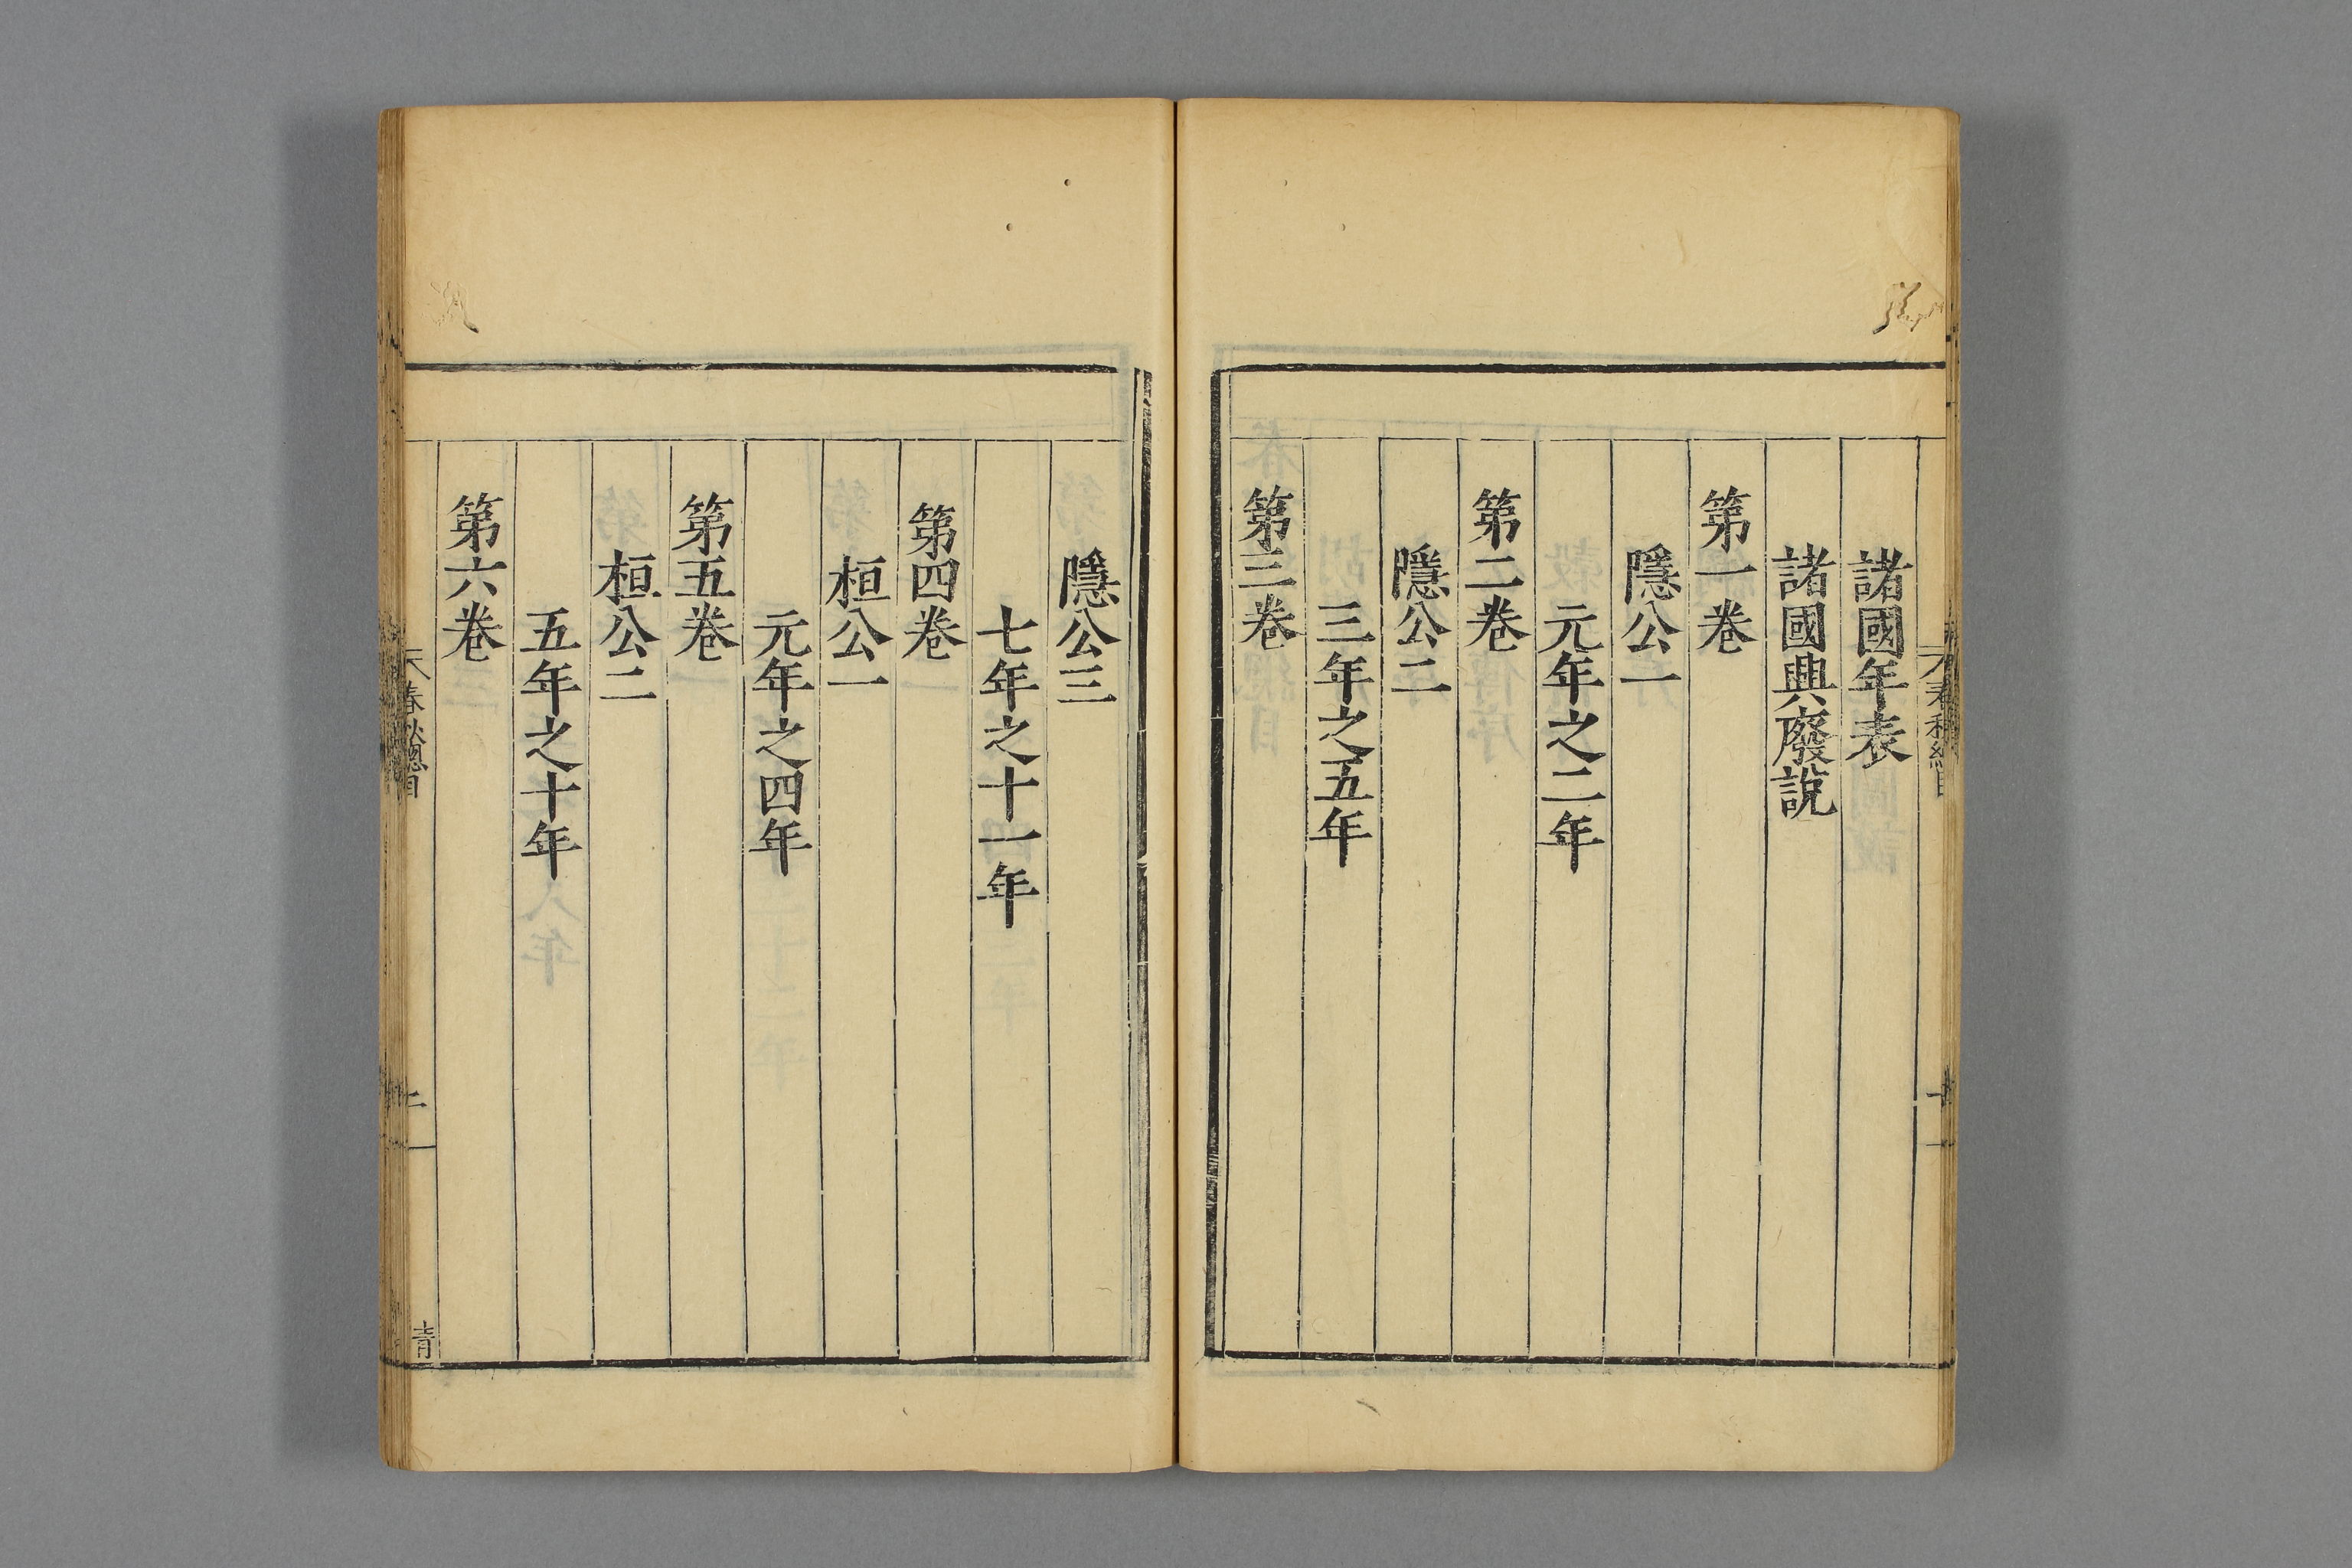 諸國年表
諸國興廢說
第一卷
隱公一
元年之二年
第二卷
隱公二
三年之五年
第三卷
隱公三
七年之十一年
第四卷
桓公一
元年之四年
第五卷
桓公二
五年之十年
第六卷
春秋總目
二
青